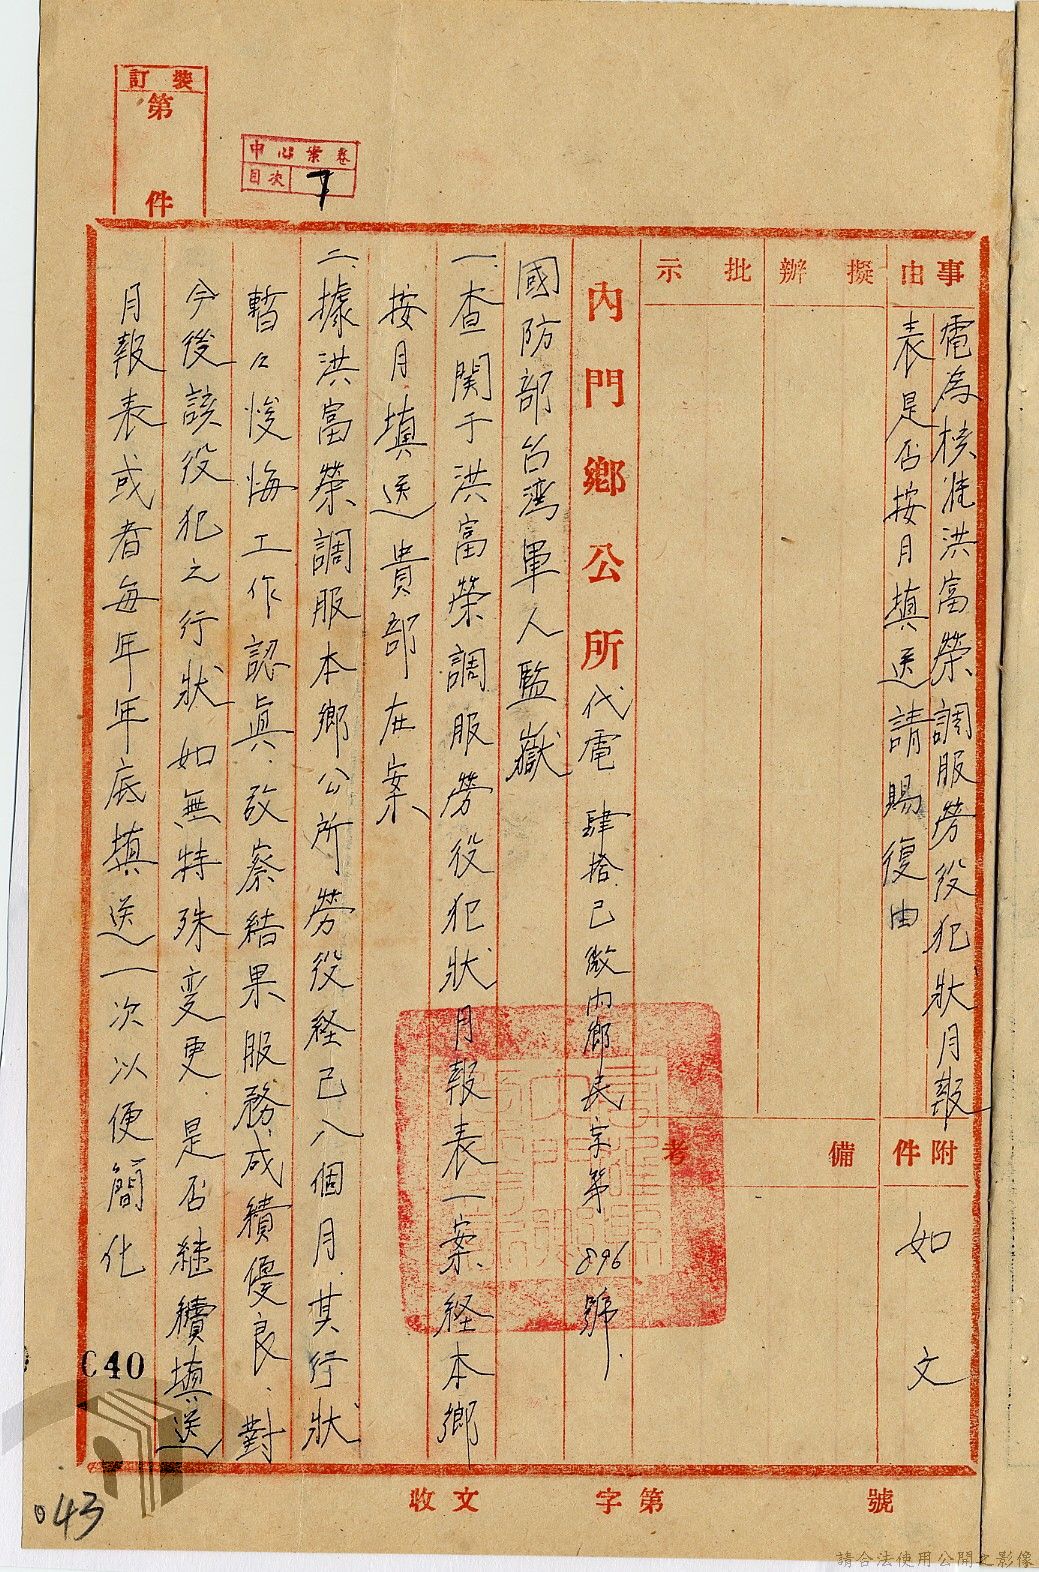 裝訂
第 件
中心案卷
目次 7
事由
電為核准洪富榮調服勞役犯狀月報
表是否按月填送請賜復由
擬辦
批示
附件
如文
備考
內門鄉公所代電 肆拾.已微內鄉民字第 896 號.
國防部台湾軍人監獄
一.查関于洪富榮調服勞役犯狀月報表一案.経本鄉
按月填送貴部在案
二.據洪富榮調服本鄉公所勞役経已八個月.其行狀
暫々悛悔工作認真.攷察結果服務成績優良.對
今後該役犯之行狀如無特殊変更.是否継續填送
月報表或者每年年底填送一次以便簡化
收文
字第
號
C40
043
請合法使用公開之影像